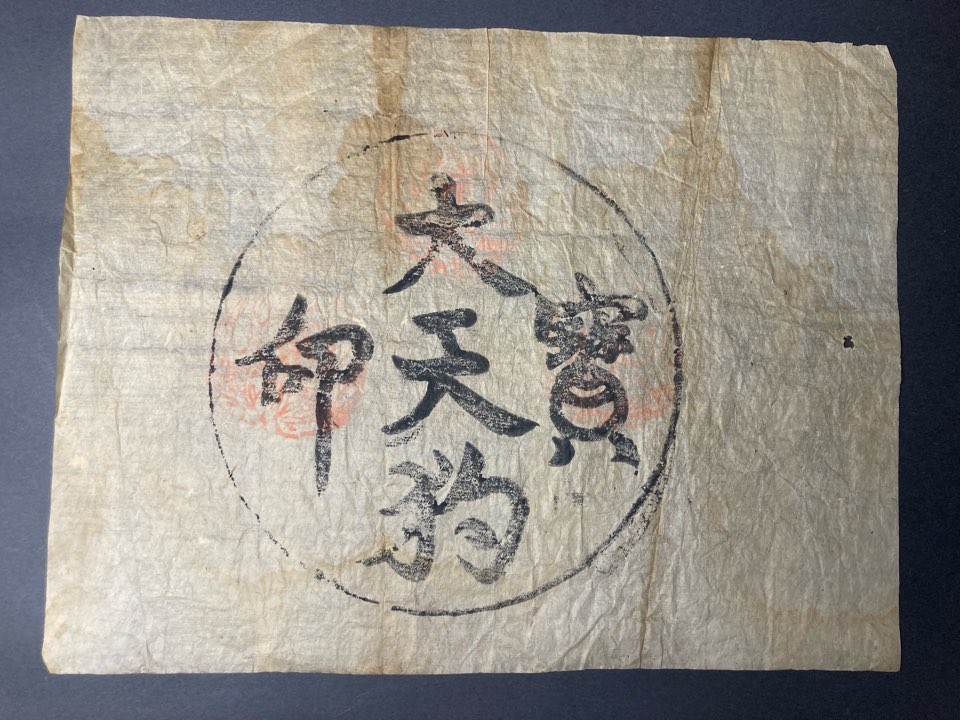 大天狗
寶
印